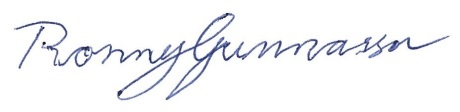 Ronny Gunnarsson